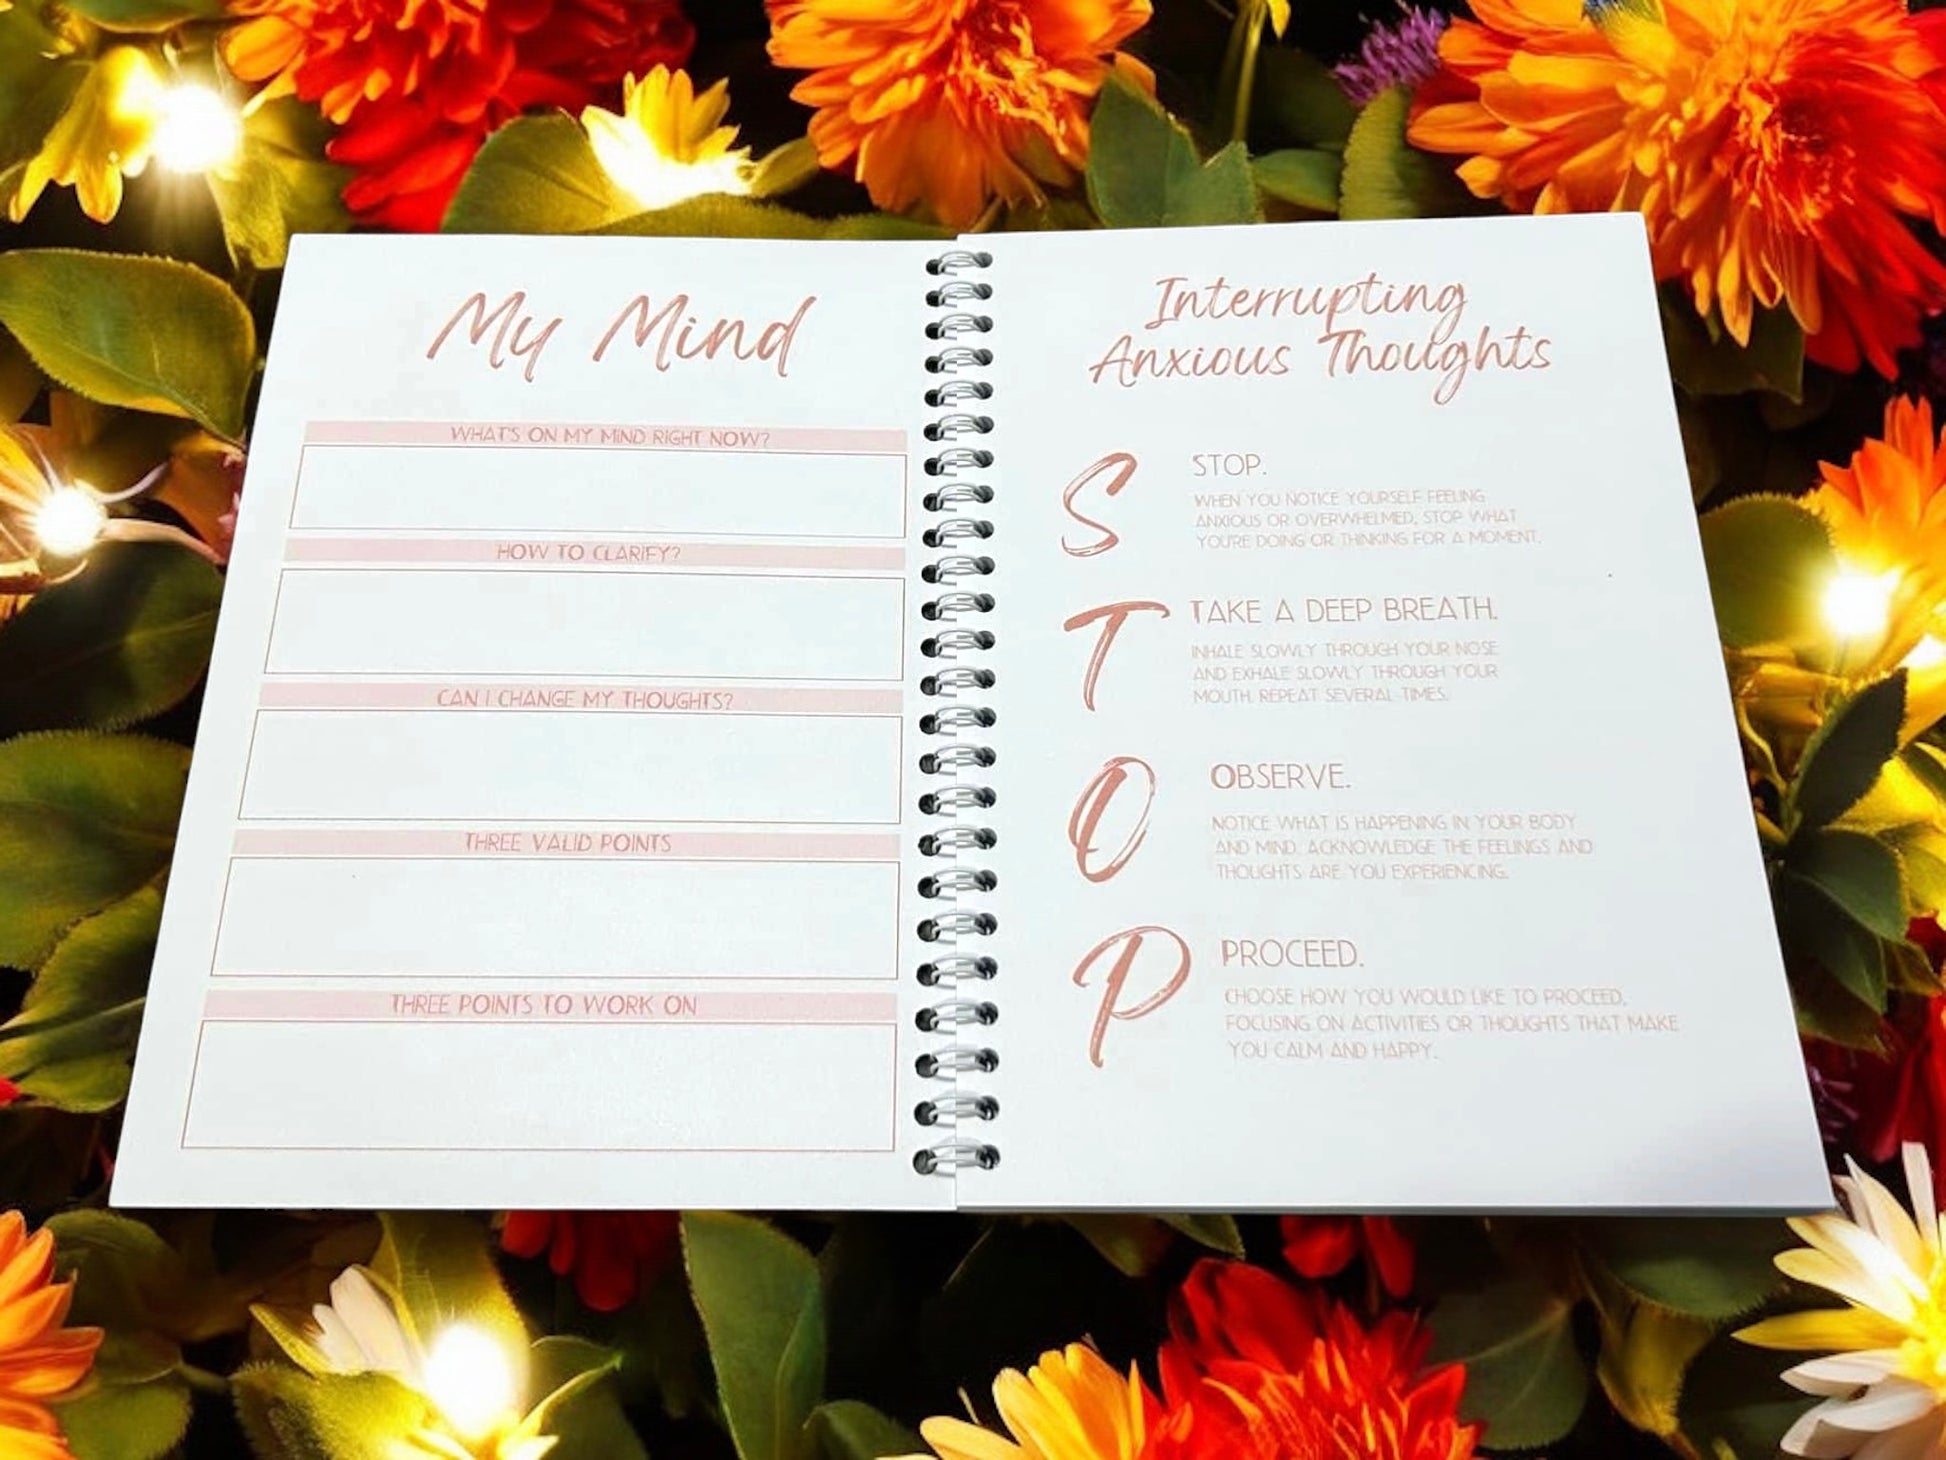 My Mind
WHAT'S ON MY MIND RIGHT NOW?
HOW TO CLARIFY?
CAN I CHANGE MY THOUGHTS?
THREE VALID POINTS
THREE POINTS TO WORK ON
Interrupting
Anxious Thoughts
S
STOP.
WHEN YOU NOTICE YOURSELF FEELING
ANXIOUS OR OVERWHELMED, STOP WHAT
YOU'RE DOING OR THINKING FOR A MOMENT.
T
TAKE A DEEP BREATH.
INHALE SLOWLY THROUGH YOUR NOSE
AND EXHALE SLOWLY THROUGH YOUR
MOUTH. REPEAT SEVERAL TIMES.
O
OBSERVE.
NOTICE WHAT IS HAPPENING IN YOUR BODY
AND MIND. ACKNOWLEDGE THE FEELINGS AND
THOUGHTS ARE YOU EXPERIENCING.
P
PROCEED.
CHOOSE HOW YOU WOULD LIKE TO PROCEED,
FOCUSING ON ACTIVITIES OR THOUGHTS THAT MAKE
YOU CALM AND HAPPY.